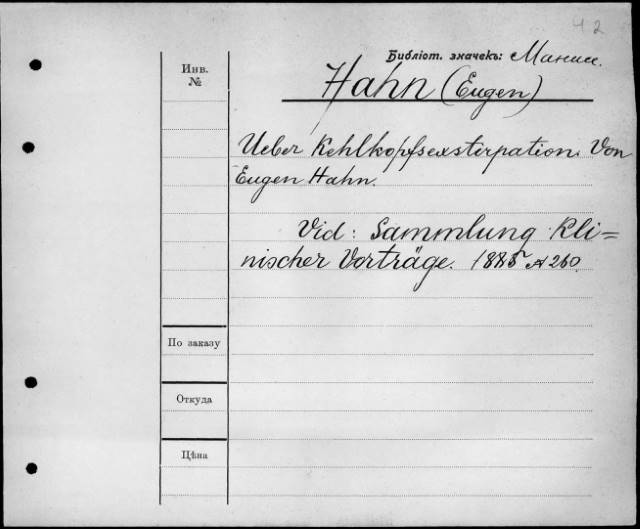 42
Библіот. значекъ:
Инв.
№
Hahn (Eugen)
Ueber Kehlkopfsexstirpation. Von
Eugen Hahn.
Vid: Sammlung kli=
nischer Vorträge. 1885 № 260.
По заказу
Откуда
Цѣна